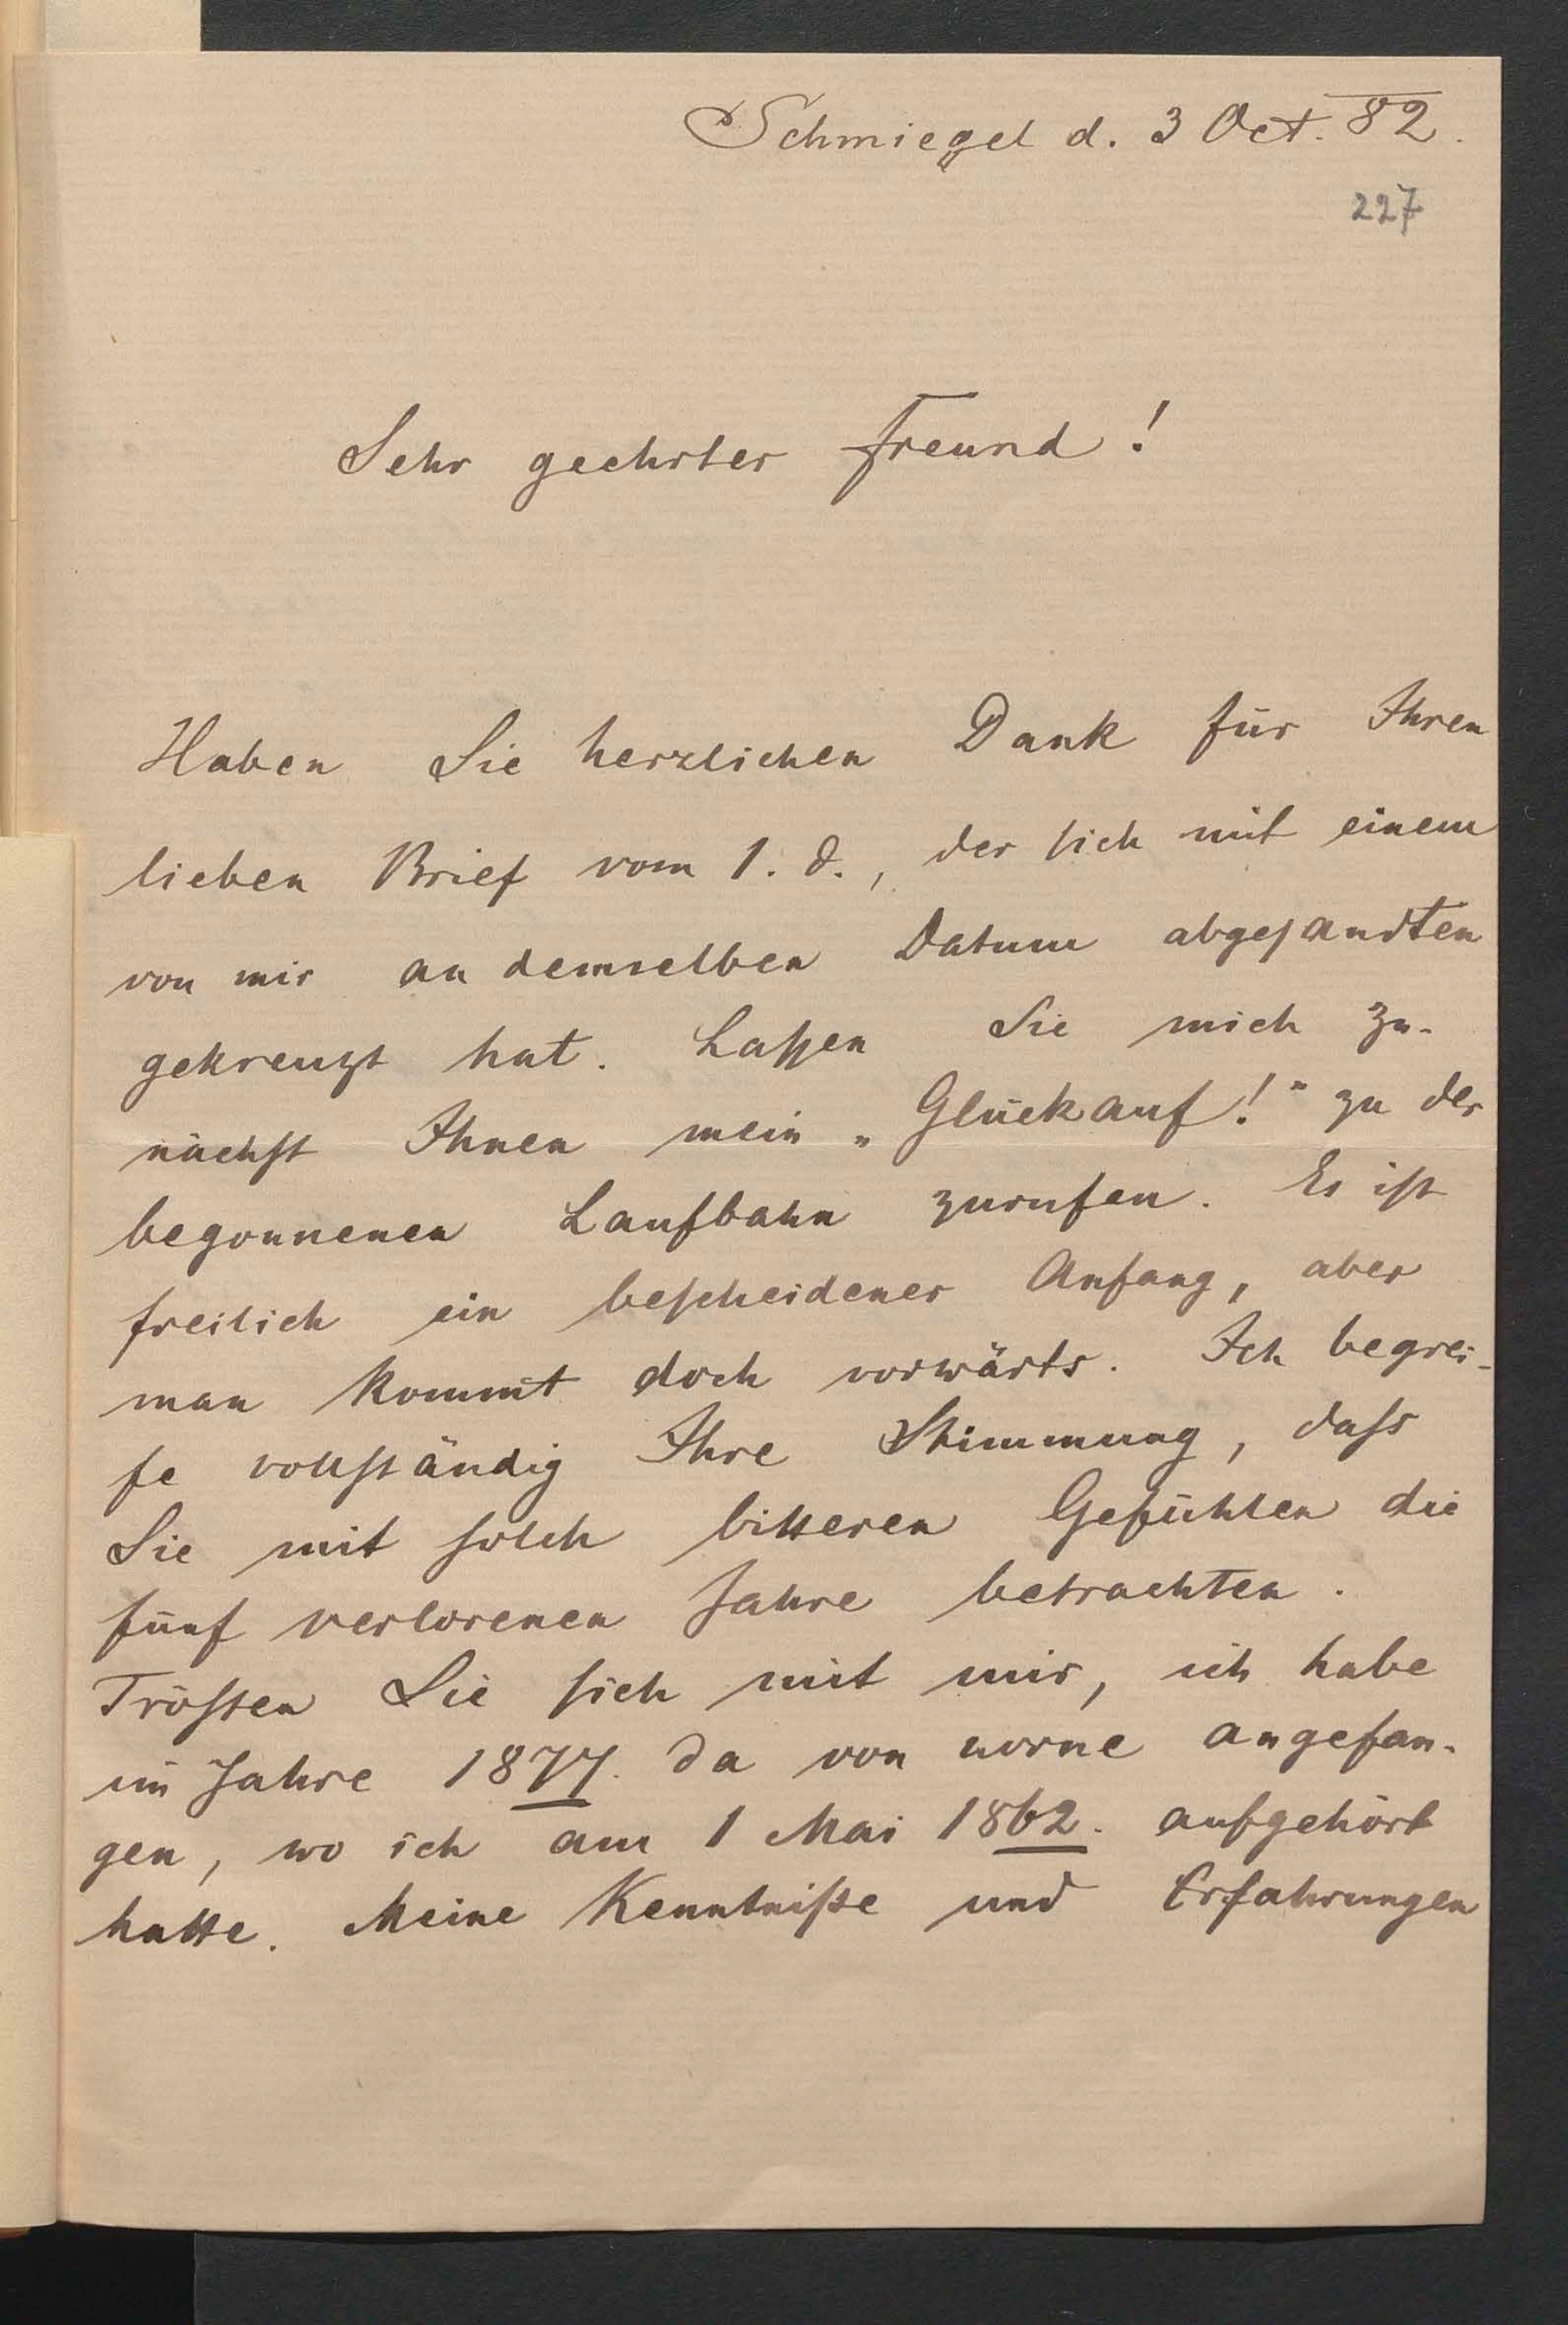 Schmiegel d. 3 Oct. 82.
227
Sehr geehrter Freund!
Haben Sie herzlichen Dank für Ihren
lieben Brief vom 1. d., der sich mit einem
von mir an demselben Datum abgesandten
gekreuzt hat. Laßen Sie mich zu-
nächst Ihnen mein „Glückauf!“ zu der
begonnenen Laufbahn zurufen. Es ist
freilich ein bescheidener Anfang, aber
man kommt doch vorwärts. Ich begrei-
fe vollständig Ihre Stimmung, daß
Sie mit solch bitteren Gefühlen die
fünf verlorenen Jahre betrachten.
Trösten Sie sich mit mir, ich habe
im Jahre 1877. da von vorne angefan-
gen, wo ich am 1 Mai 1862. aufgehört
hatte. Meine Kenntniße und Erfahrungen